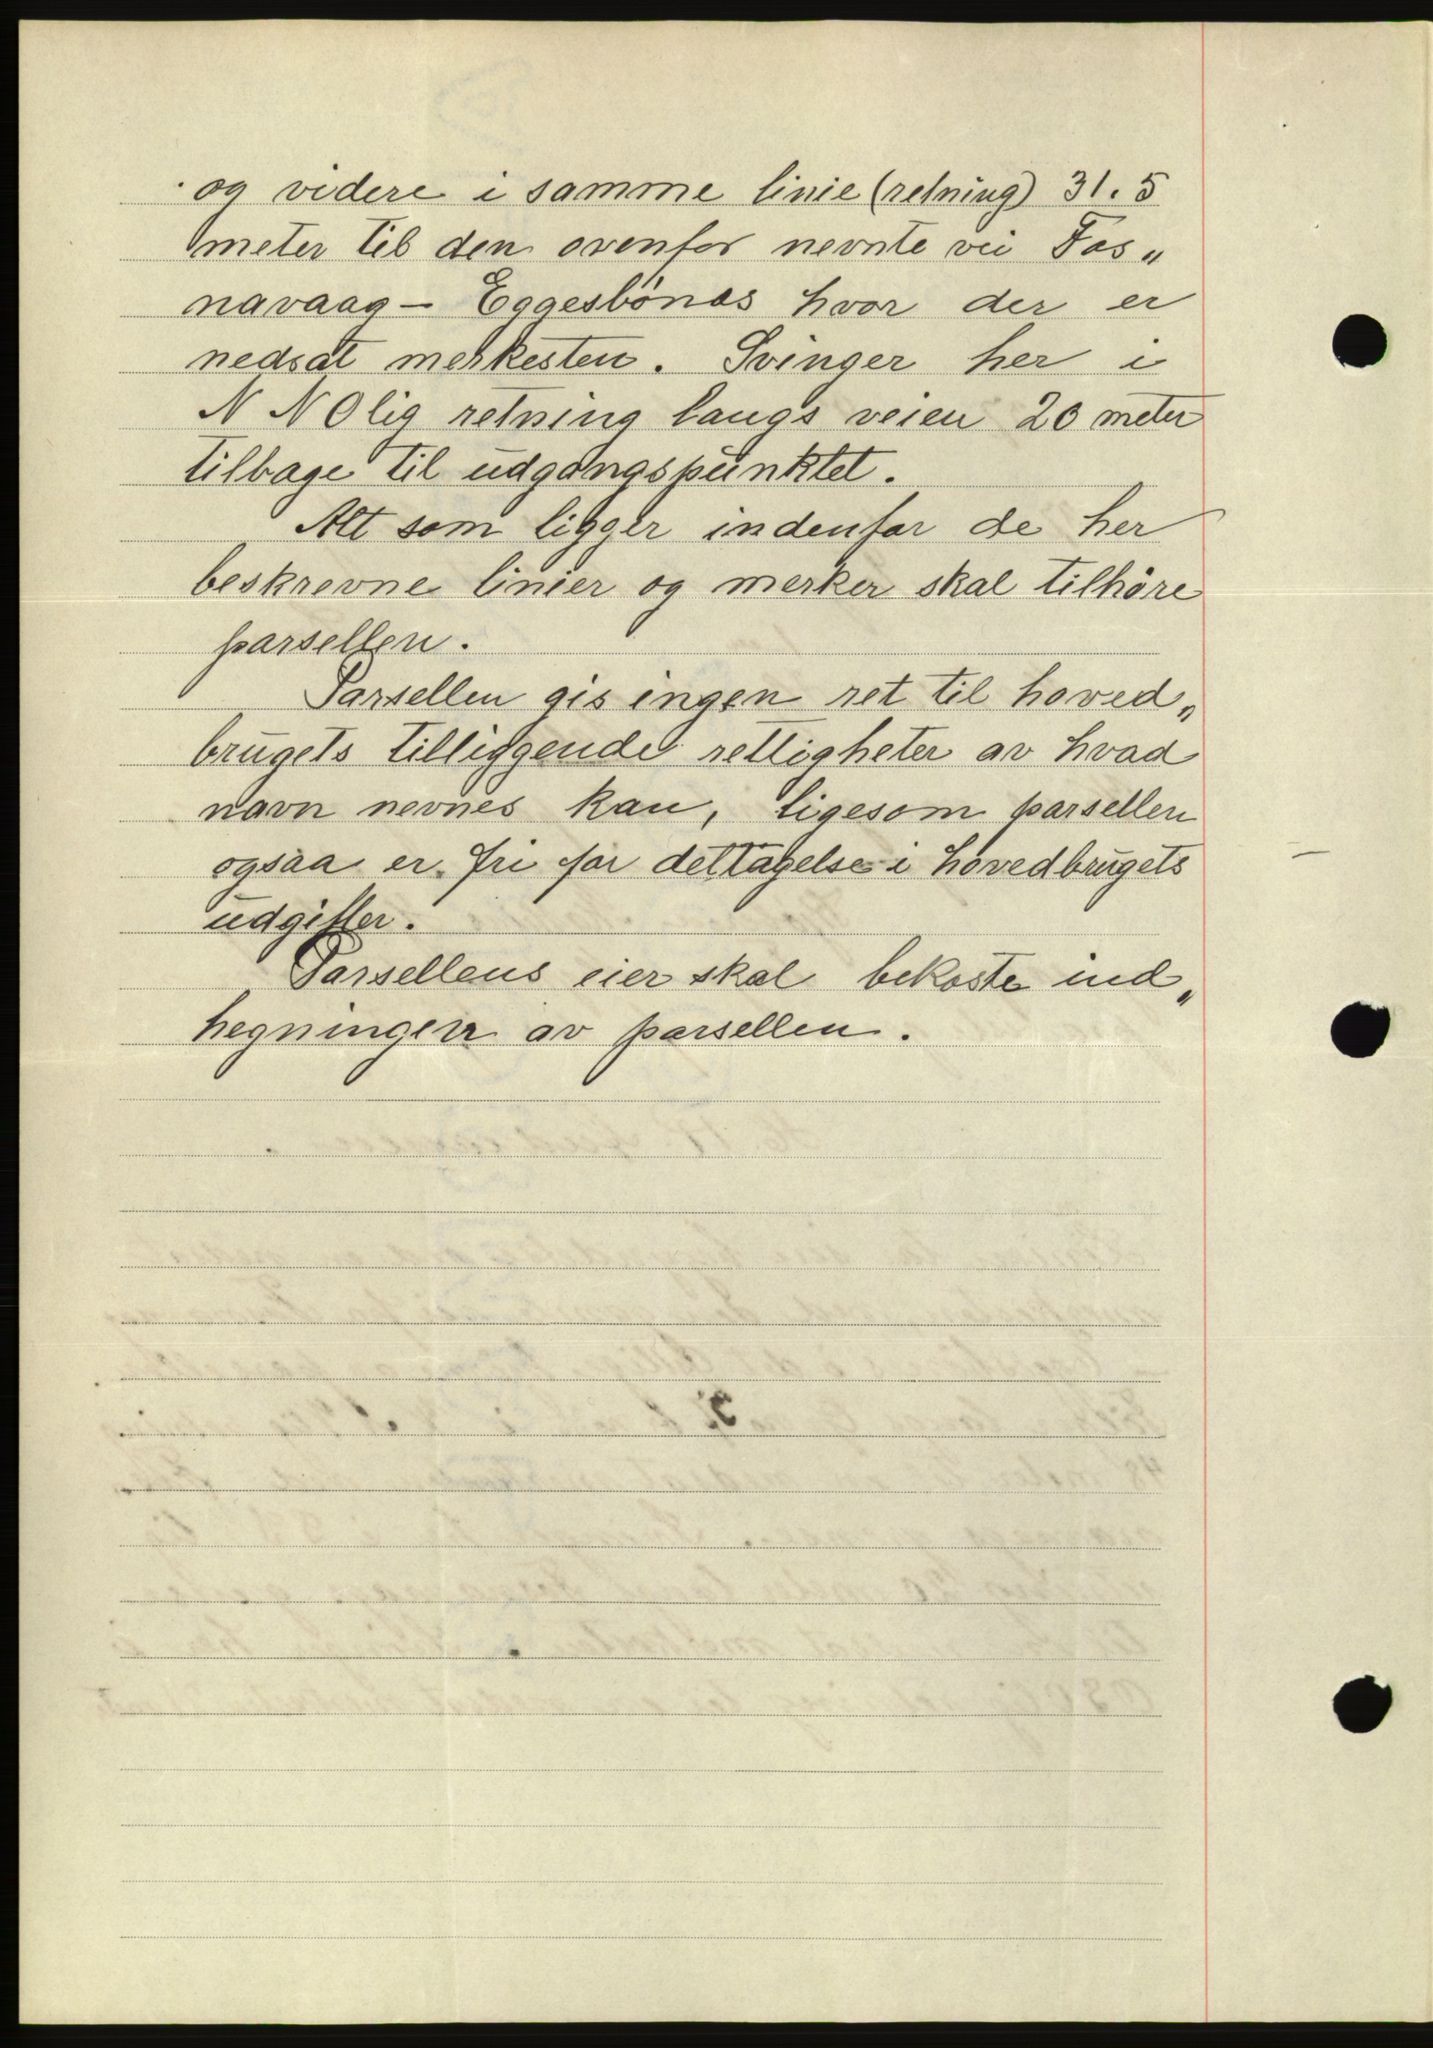 og videre i samme linie (retning) 31.5
meter til den ovenfor nevnte vei Fos„
navaag – Eggesbönes hvor der er
nedsat merkesten. Svinger her i
N N Olig retning langs veien 20 meter
tilbage til udgangspunktet.
Alt som ligger indenfor de her
beskrevne linier og merker skal tilhøre
parsellen.
Parsellen gis ingen ret til hoved„
brugets tilliggende rettigheter av hvad
navn nevnes kan, ligesom parsellen
ogsaa er fri for deltagelse i hovedbrugets
udgifter.
Parsellens eier skal bekoste ind„
hegningen av parsellen.